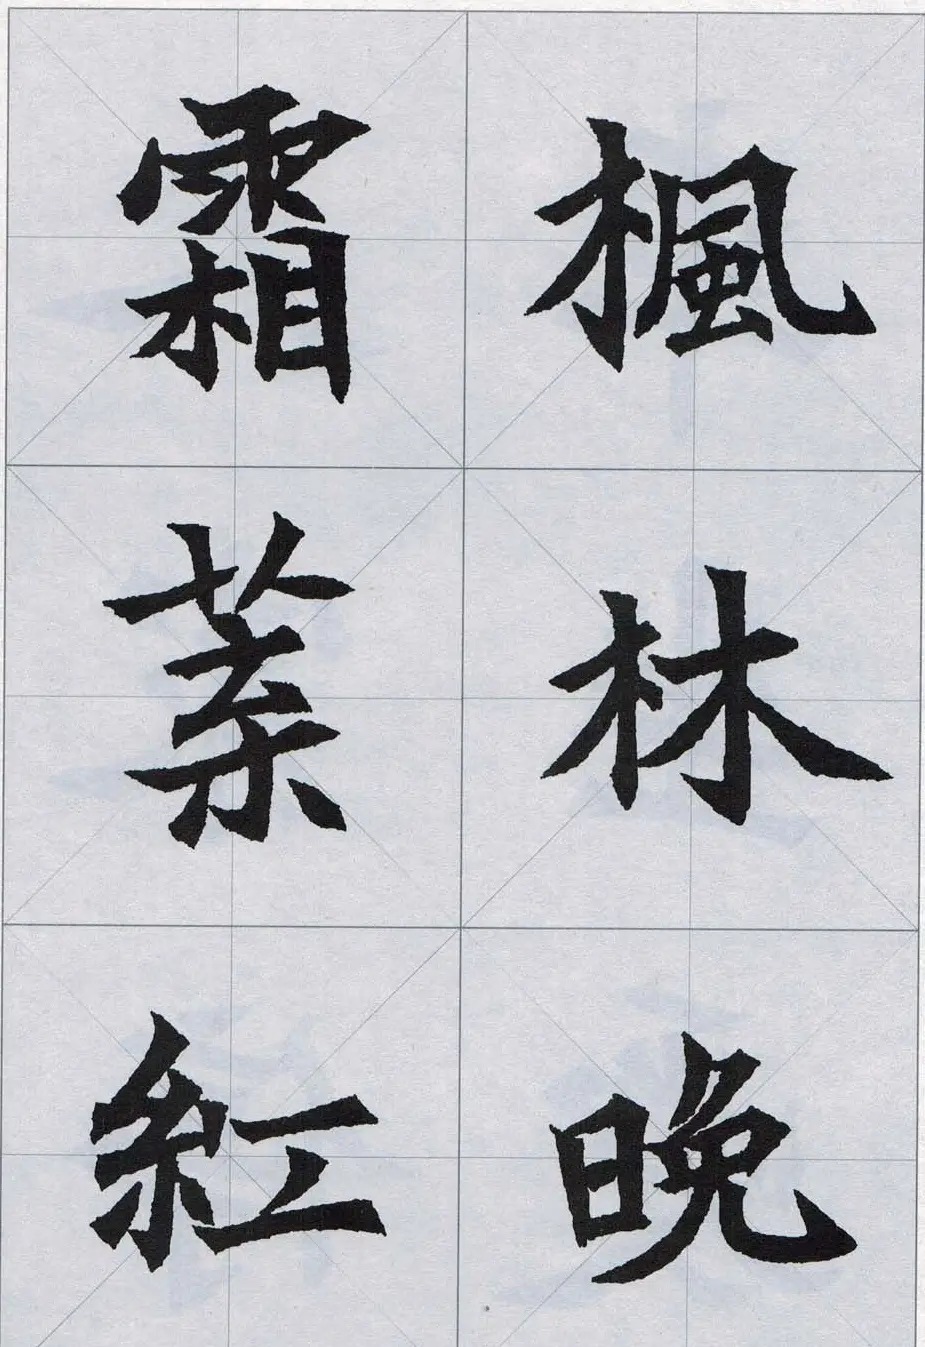 楓林晚
霜葉紅